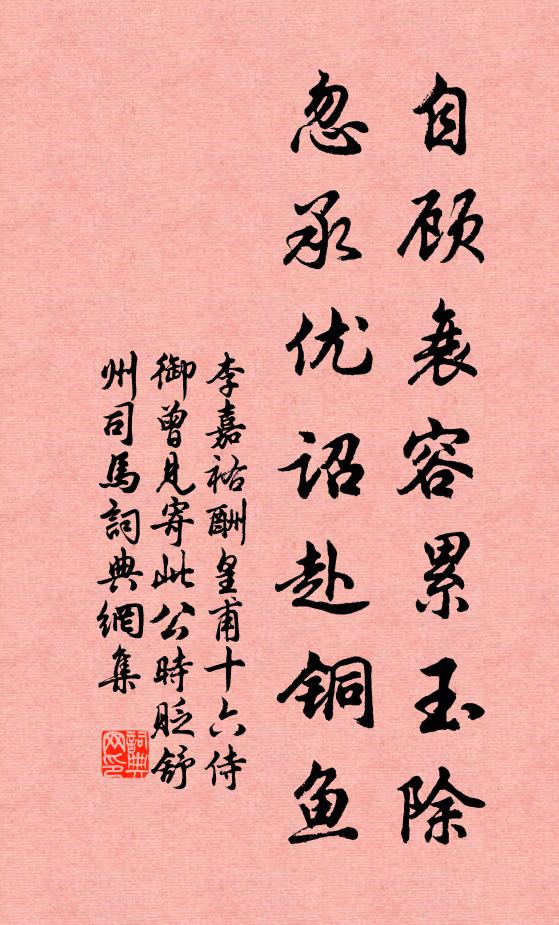 自顾衰容累玉除
忽承优诏赴铜鱼
李嘉祐酬皇甫十六侍
御曾见寄此公時貶舒
州司馬詞典網集
詞典
网印